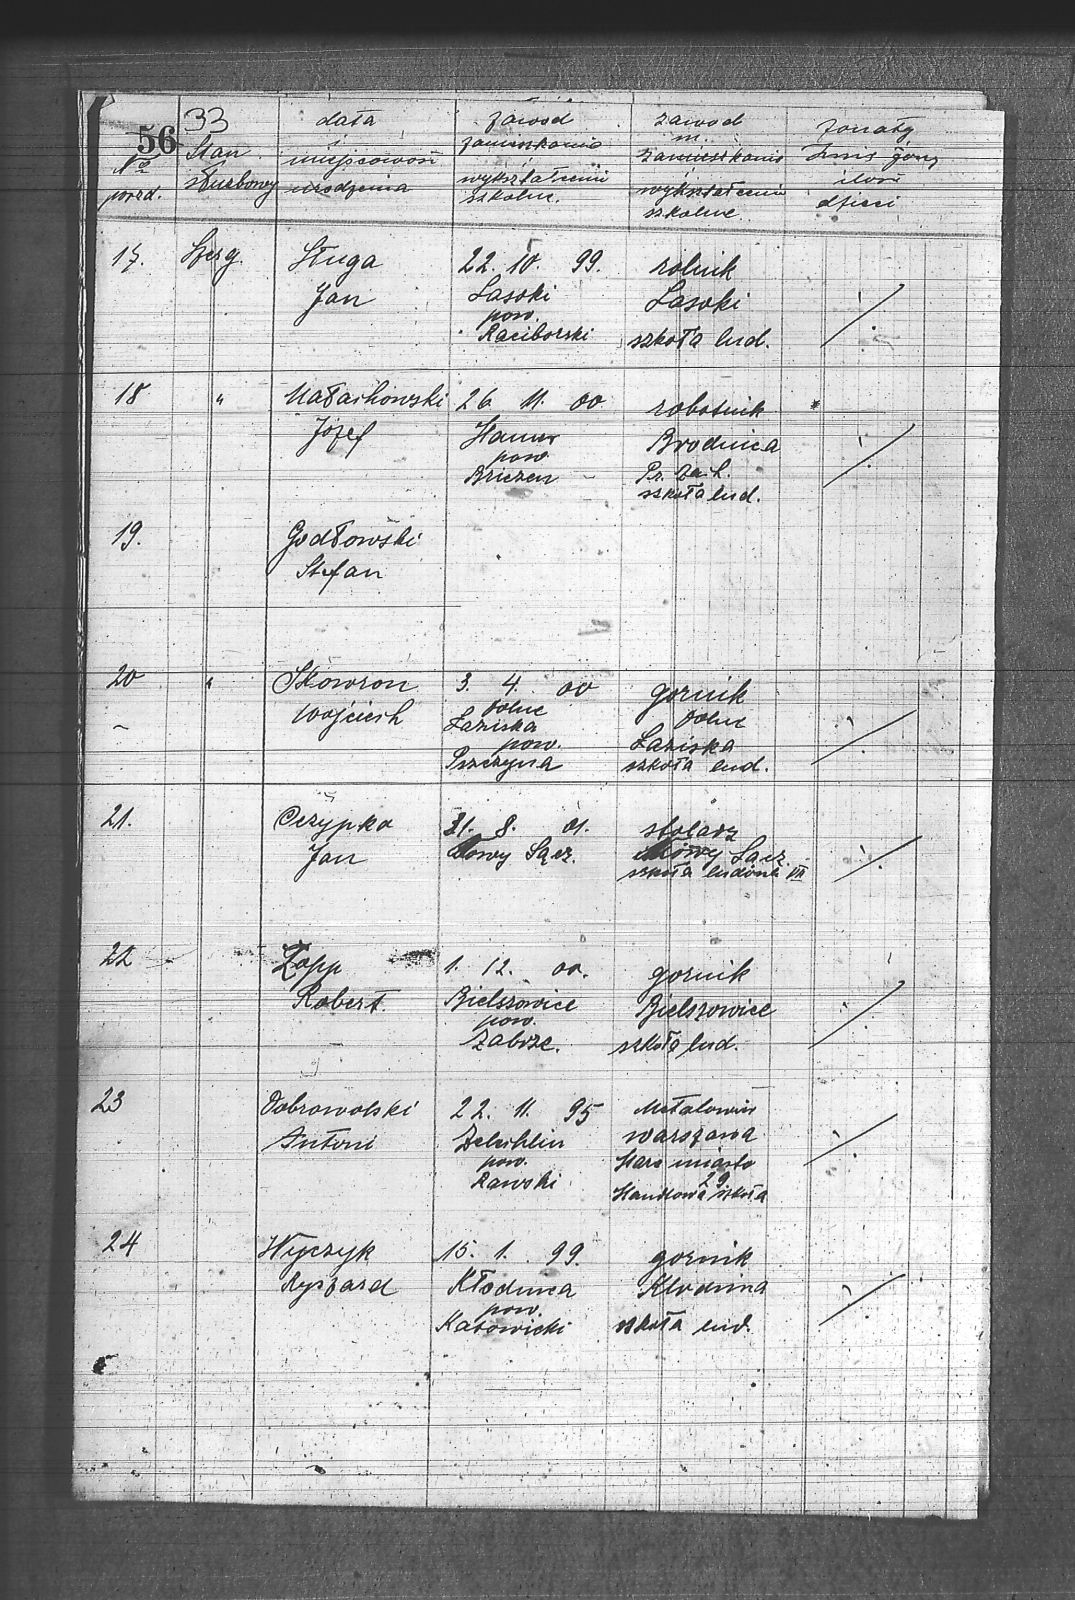 56 33
№ porzd.
Stan służbowy
data i miejscowość urodzenia
zawód zamieszkanie wykształcenie szkolne.
zawód m. zamieszkanie wykształcenie szkolne.
żonaty Imię żony ilość dzieci
17. Szerg. Sługa 22. 10. 99. rolnik
Jan Lasoki Lasoki
pow.
Raciborski szkoła lud.
18 " Małachowski 26 11. 00 robotnik
Józef Brodnica
pow.
Briezen Pr. Zach.
szkoła lud.
19. Godłowski
Stefan
20 " Skowron 3. 4. 00 gornik
Wojciech dolne dolne
Łaziska Łaziska
pow.
Pszczyna szkoła lud.
21. Czypka 31. 8. 01. stolarz
Jan Nowy Sącz. Nowy Sącz.
szkoła ludowa VII
22 Zopp 1. 12. 00. gornik
Robert. Bielszowice Bielszowice
pow.
Zabrze. szkoła lud.
23 Dobrowolski 22. 11. 95 Metalowiec
Antoni Zelechlin warszawa
pow. Stare miasto
Rawski 29
Handlowa szkoła
24 Wyczyk 15. 1. 99. gornik
Ryszard Kłodnica Klodnica
pow.
Katowicki szkoła lud.